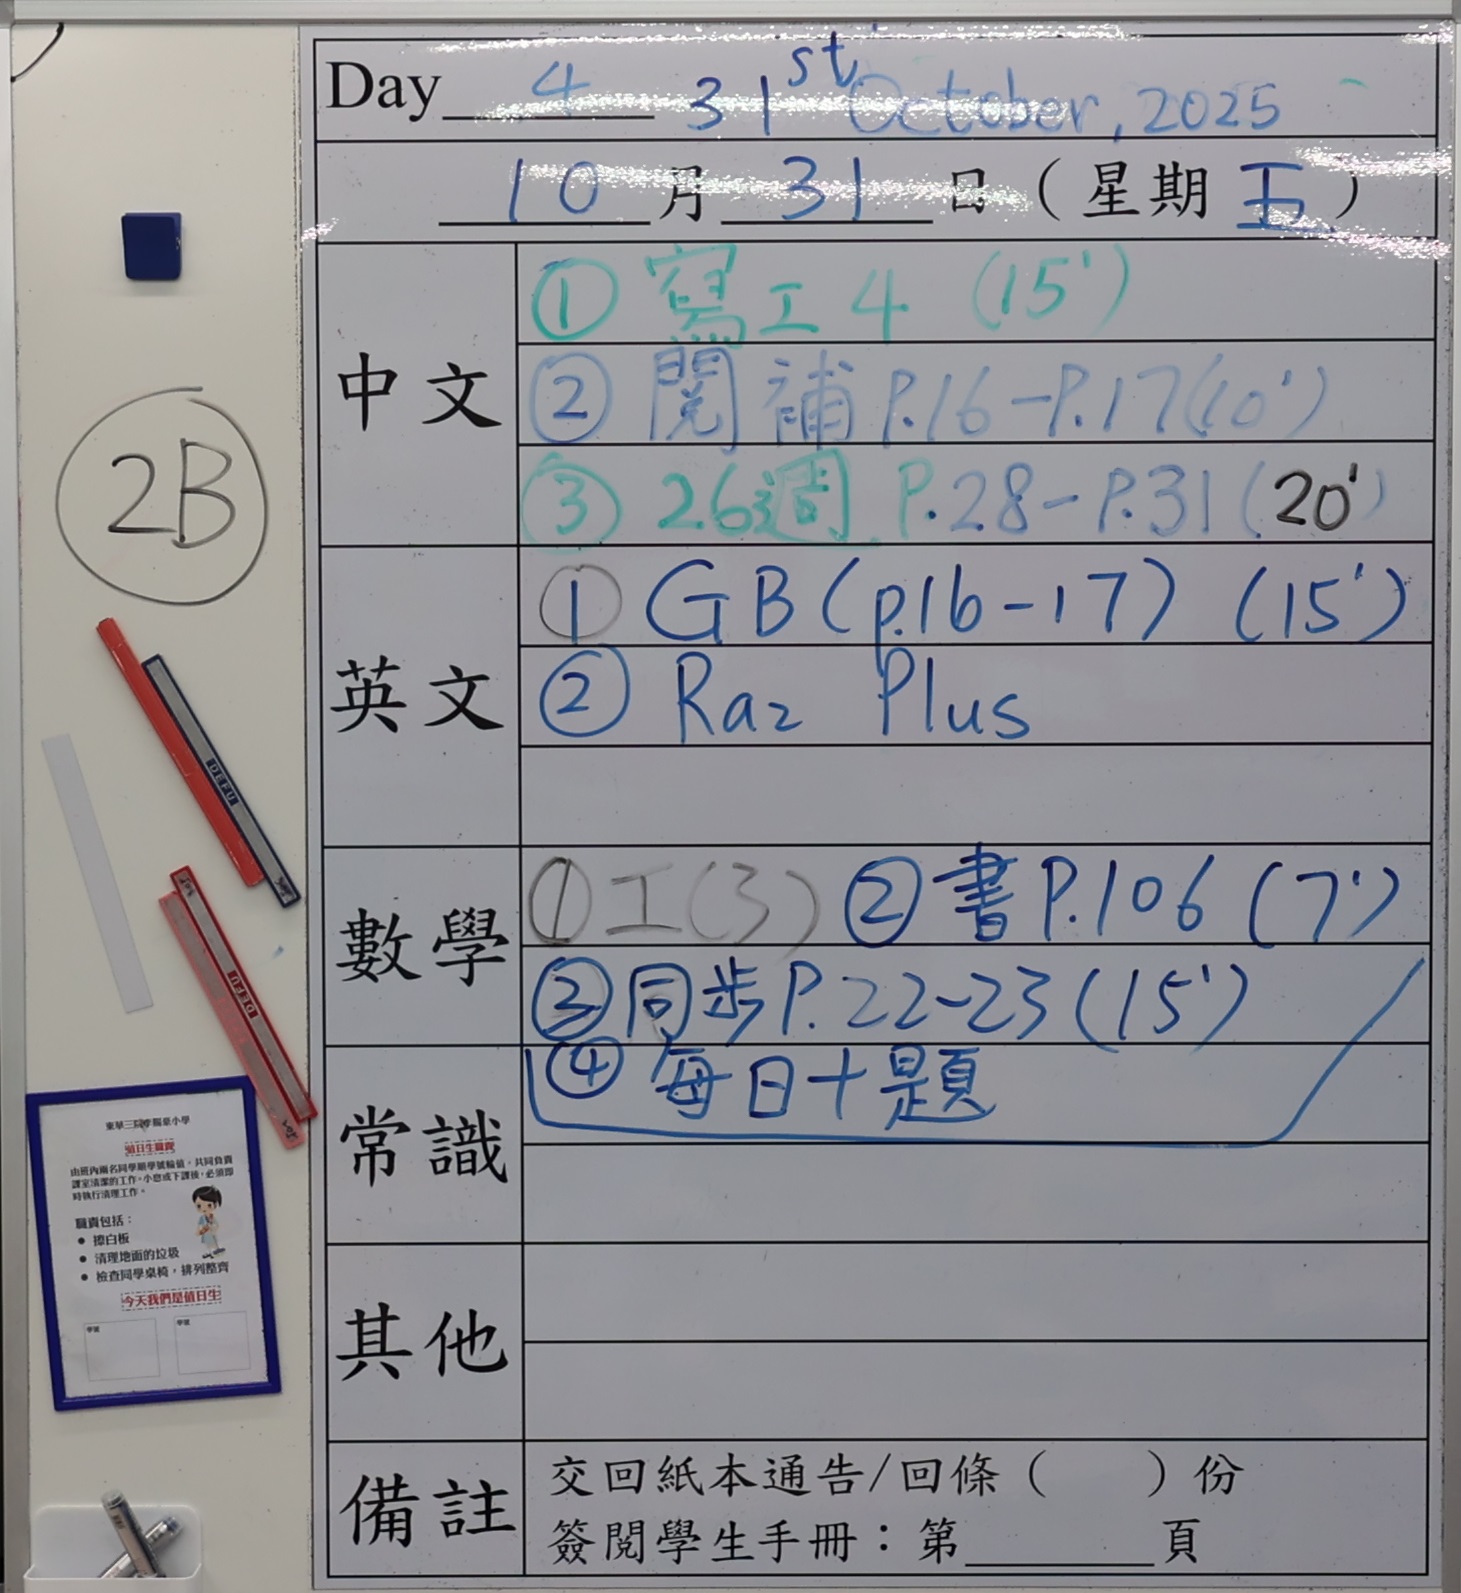 Day 4 31st October, 2025
10月31日（星期五）
中文
① 寫工4 (15')
② 閱補 P.16-P.17(10')
③ 26週 P.28-P.31(20')
英文
① GB(p.16-17) (15')
② Raz Plus
數學
①工(3) ②書P.106 (7')
③同步P.22-23(15')
④每日十題
常識
其他
備註
交回紙本通告/回條（ ）份
簽閱學生手冊：第______頁
2B
DEFU
DEFU
值日生職責
由班內兩名同學順學號輪值，共同負責
課室清潔的工作。小息或下課後，必須即
時執行清理工作。
職責包括：
● 擦白板
● 清理地面的垃圾
● 檢查同學桌椅，排列整齊
今天我們是值日生
學號 學號